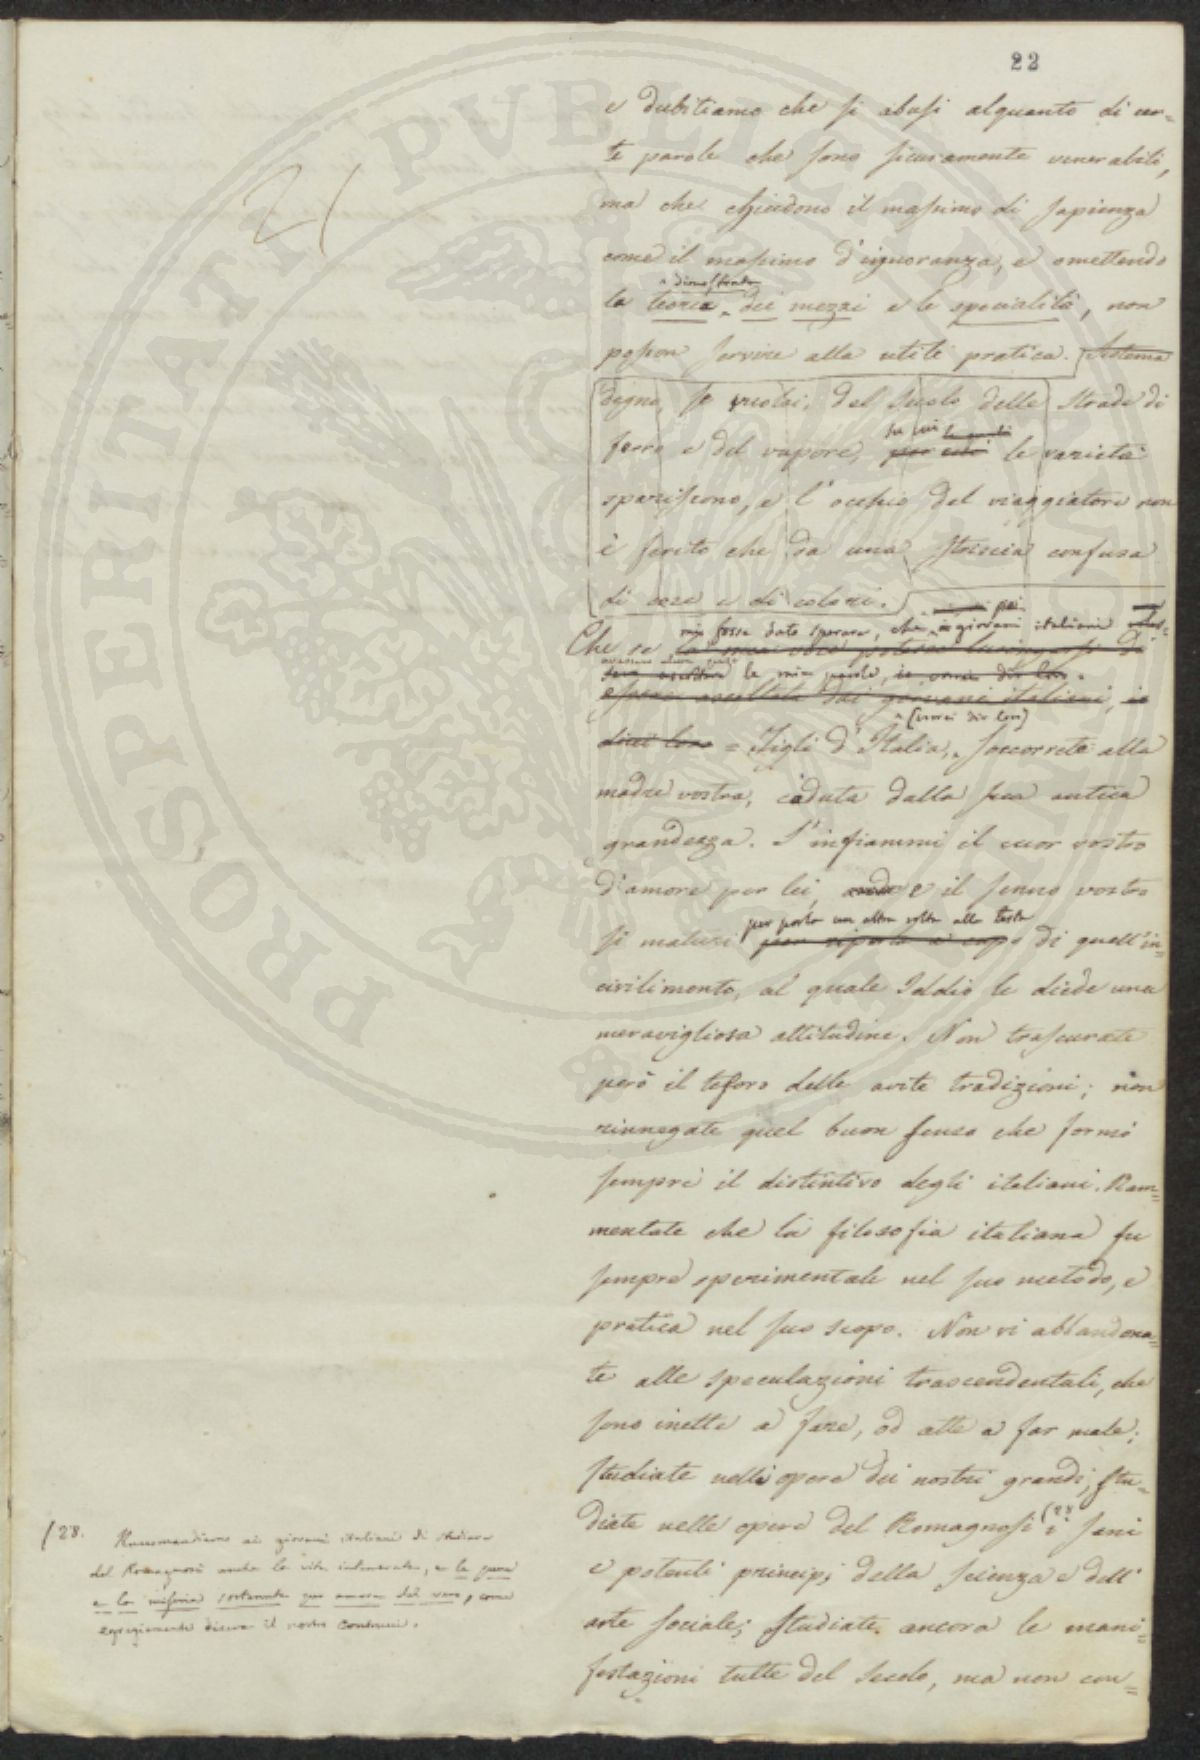 22
21
PROSPERITATI PVBLICAE
e dubitiamo che si abusi alquanto di cer=
te parole che sono sicuramente venerabili,
ma che chiudono il massimo di sapienza
come il massimo d'ignoranza, e omettendo
^ dimostrata
la teoria ^ dei mezzi e le specialità, non
posson servire alla utile pratica. Sistema
degno, se vuolsi, del secolo delle strade di
su cui le quali
ferro e del vapore, per cui le varietà
spariscono, e l'occhio del viaggiatore non
è ferito che da una striscia confusa
di cose e di colori.
mi fosse dato sperare, che giovani italiani
Che se la mia voce potesse lusingarsi di
le mie parole, io vorrei dir loro =
essere ascoltata dai giovani italiani, io
^ (vorrei dir loro)
direi loro = Figli d'Italia, ^ soccorrete alla
madre vostra, caduta dalla sua antica
grandezza. S'infiammi il cuor vostro
d'amore per lei, e il senno vostro
per porla una altra volta alla testa
si maturi per riporla a capo di quell'in=
civilimento, al quale Iddio le diede una
meravigliosa attitudine. Non trascurate
però il tesoro delle avite tradizioni; non
rinnegate quel buon senso che formò
sempre il distintivo degli italiani. Ram=
mentate che la filosofia italiana fu
sempre sperimentale nel suo metodo, e
pratica nel suo scopo. Non vi abbandona=
te alle speculazioni trascendentali, che
sono inette a fare, od atte a far male;
studiate nelle opere dei nostri grandi; stu=
diate nelle opere del Romagnosi (28 i sani
e potenti principj della scienza e dell'
arte sociale; studiate ancora le mani=
festazioni tutte del secolo, ma non con=
(28. Raccomandiamo ai giovani italiani di studiare
del Romagnosi anche la vita intemerata, e le pene
e la miseria sostenute per amore del vero, come
egregiamente diceva il nostro Centofanti.